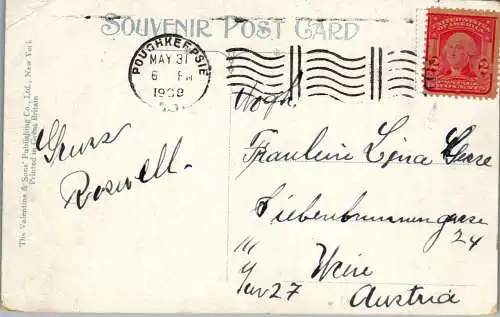 SOUVENIR POST CARD
POUGHKEEPSIE
MAY 31
6 PM
1908
The Valentine & Sons' Publishing Co., Ltd., New York
Printed in Great Britain
Gruss
Roswell.
Wohlg.
Fräulein Lina
Siebenbrunnengasse
24
Wien
Austria